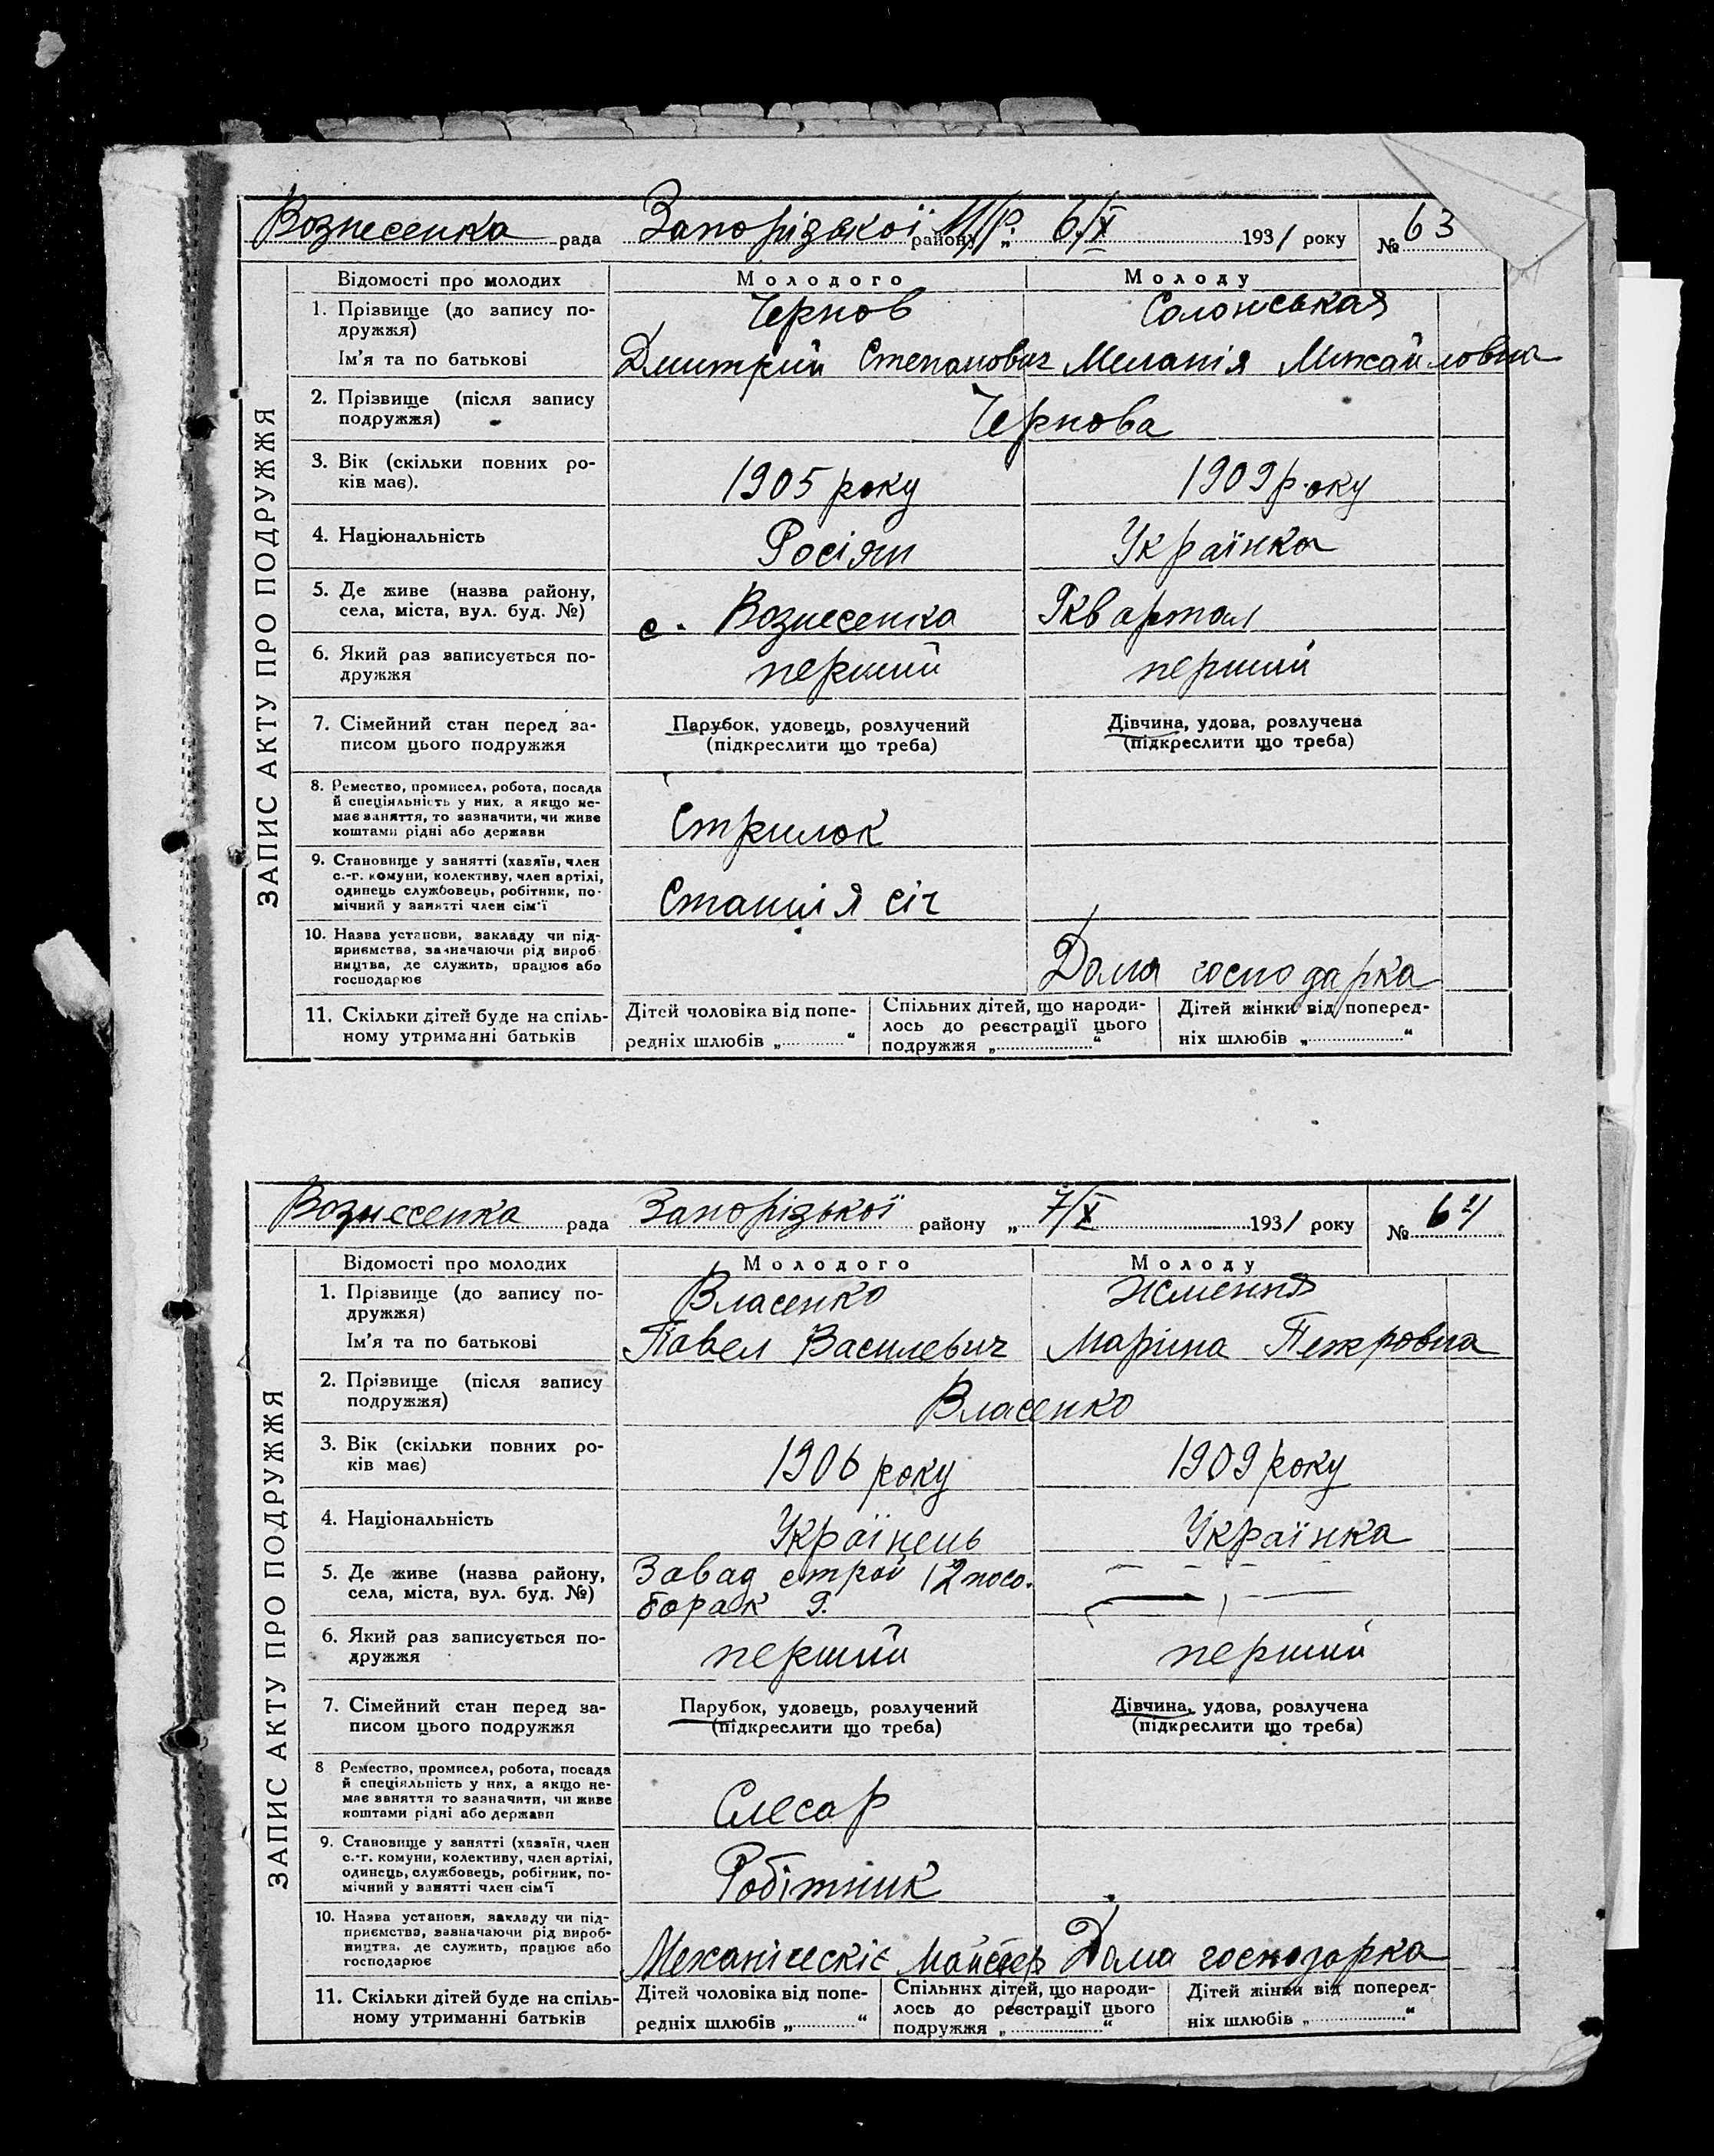 Вознесенка рада Запорізької М/Р. району „ 6/X 1931 року № 63
ЗАПИС АКТУ ПРО ПОДРУЖЖЯ
Відомості про молодих Молодого Молоду
1. Прізвище (до запису по- Чернов Солонськая
дружжя)
Ім'я та по батькові Дмиткий Степанович Миланія Михайловна
2. Прізвище (після запису
подружжя) Чернова
3. Вік (скільки повних ро-
ків має). 1905 року 1909 року
4. Національність Росіян Українка
5. Де живе (назва району,
села, міста, вул. буд. №) с. Вознесенка Квартал
6. Який раз записується по- перший перший
дружжя
7. Сімейний стан перед за- Парубок, удовець, розлучений Дівчина, удова, розлучена
писом цього подружжя (підкреслити що треба) (підкреслити що треба)
8. Ремество, промисел, робота, посада
й спеціяльність у них, а якщо не-
має заняття, то зазначити, чи живе
коштами рідні або держави Стрилок
9. Становище у занятті (хазяїн, член
с.-г. комуни, колективу, член артілі,
одинець службовець, робітник, по-
мічний у занятті член сім'ї Станція січ
10. Назва установи, закладу чи під-
приємства, зазначаючи рід вироб-
ництва, де служить, працює або
господарює Дома господарка
11. Скільки дітей буде на спіль-
ному утриманні батьків
Дітей чоловіка від попе-
редніх шлюбів „ “
Спільних дітей, що народи-
лось до реєстрації цього
подружжя „ “
Дітей жінки від поперед-
ніх шлюбів „ “
Вознесенка рада Запорізької району „ 7/X 1931 року № 64
ЗАПИС АКТУ ПРО ПОДРУЖЖЯ
Відомості про молодих Молодого Молоду
1. Прізвище (до запису по- Власенко Жмення
дружжя)
Ім'я та по батькові Павел Василевич Маріна Петровна
2. Прізвище (після запису
подружжя) Власенко
3. Вік (скільки повних ро-
ків має) 1906 року 1909 року
4. Національність Українець Українка
5. Де живе (назва району, Завад строй 12 посо.
села, міста, вул. буд. №) борак 9.
6. Який раз записується по- перший перший
дружжя
7. Сімейний стан перед за- Парубок, удовець, розлучений Дівчина, удова, розлучена
писом цього подружжя (підкреслити що треба) (підкреслити що треба)
8 Ремество, промисел, робота, посада
й спеціяльність у них, а якщо не-
має заняття то зазначити, чи живе
коштами рідні або держави Слесар
9. Становище у занятті (хазяїн, член
с.-г. комуни, колективу, член артілі,
одинець, службовець, робітник, по-
мічний у занятті член сім'ї Робітник
10. Назва установи, закладу чи під-
приємства, зазначаючи рід вироб-
ництва, де служить, працює або
господарює Механіческіє Майстер Дома господарка
11. Скільки дітей буде на спіль-
ному утриманні батьків
Дітей чоловіка від попе-
редніх шлюбів „ “
Спільних дітей, що народи-
лось до реєстрації цього
подружжя „ “
Дітей жінки від поперед-
ніх шлюбів „ “